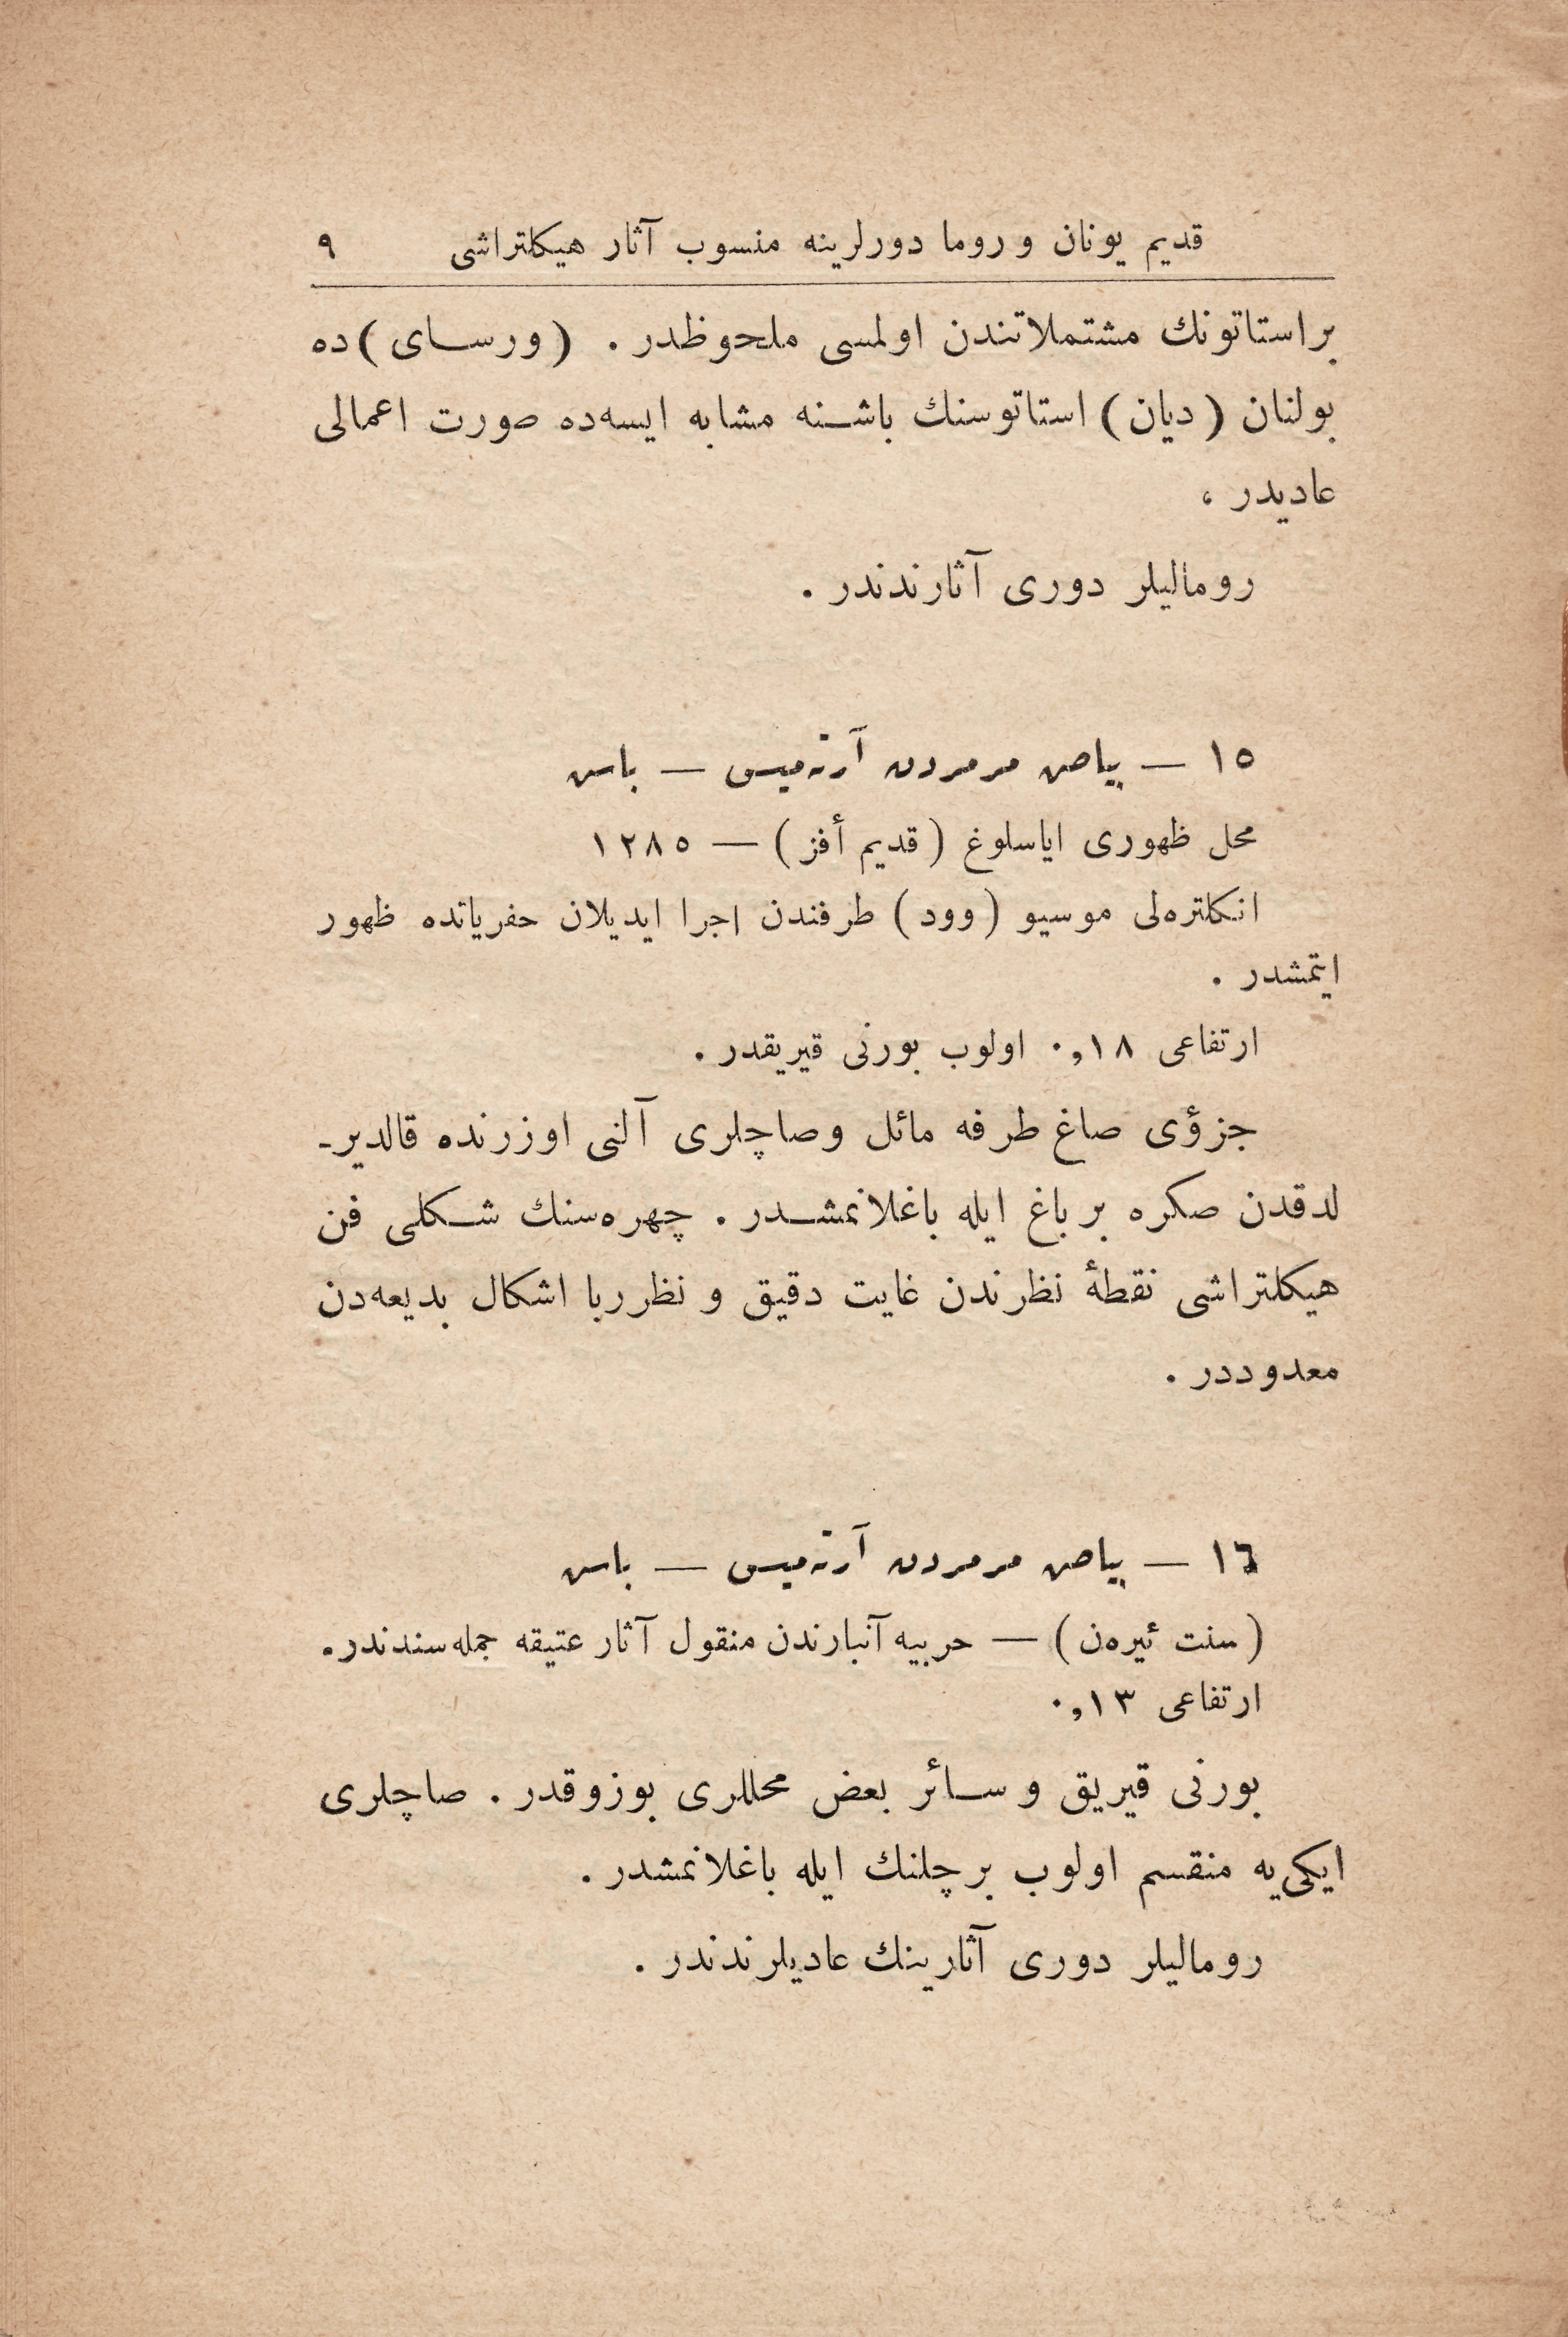 قديم يونان و روما دورلرينه منسوب آثار هيكلتراشى ٩
بر استاتونك مشتملاتندن اولمسى ملحوظدر . (ورساى) ده
بولنان (ديان) استاتوسنك باشنه مشابه ايسه‌ده صورت اعمالى
عاديدر ،
روماليلر دورى آثارندندر .
١٥ — بياض مرمردن آرته‌ميس — باش
محل ظهورى اياسلوغ (قديم أفز) — ١٢٨٥
انكلتره‌لى موسيو (وود) طرفندن اجرا ايديلان حفرياتده ظهور
ايتمشدر .
ارتفاعى ٠,١٨ اولوب بورنى قيريقدر .
جزؤى صاغ طرفه مائل وصاچلرى آلنى اوزرنده قالدير-
لدقدن صكره بر باغ ايله باغلانمشدر . چهره‌سنك شكلى فن
هيكلتراشى نقطهٔ نظرندن غايت دقيق و نظرربا اشكال بديعه‌دن
معدوددر .
١٦ — بياض مرمردن آرته‌ميس — باش
(سنت ئيره‌ن) — حربيه آنبارندن منقول آثار عتيقه جمله‌سندندر .
ارتفاعى ٠,١٣
بورنى قيريق و سائر بعض محللرى بوزوقدر . صاچلرى
ايكى‌يه منقسم اولوب بر چلنك ايله باغلانمشدر .
روماليلر دورى آثارينك عاديلرندندر .